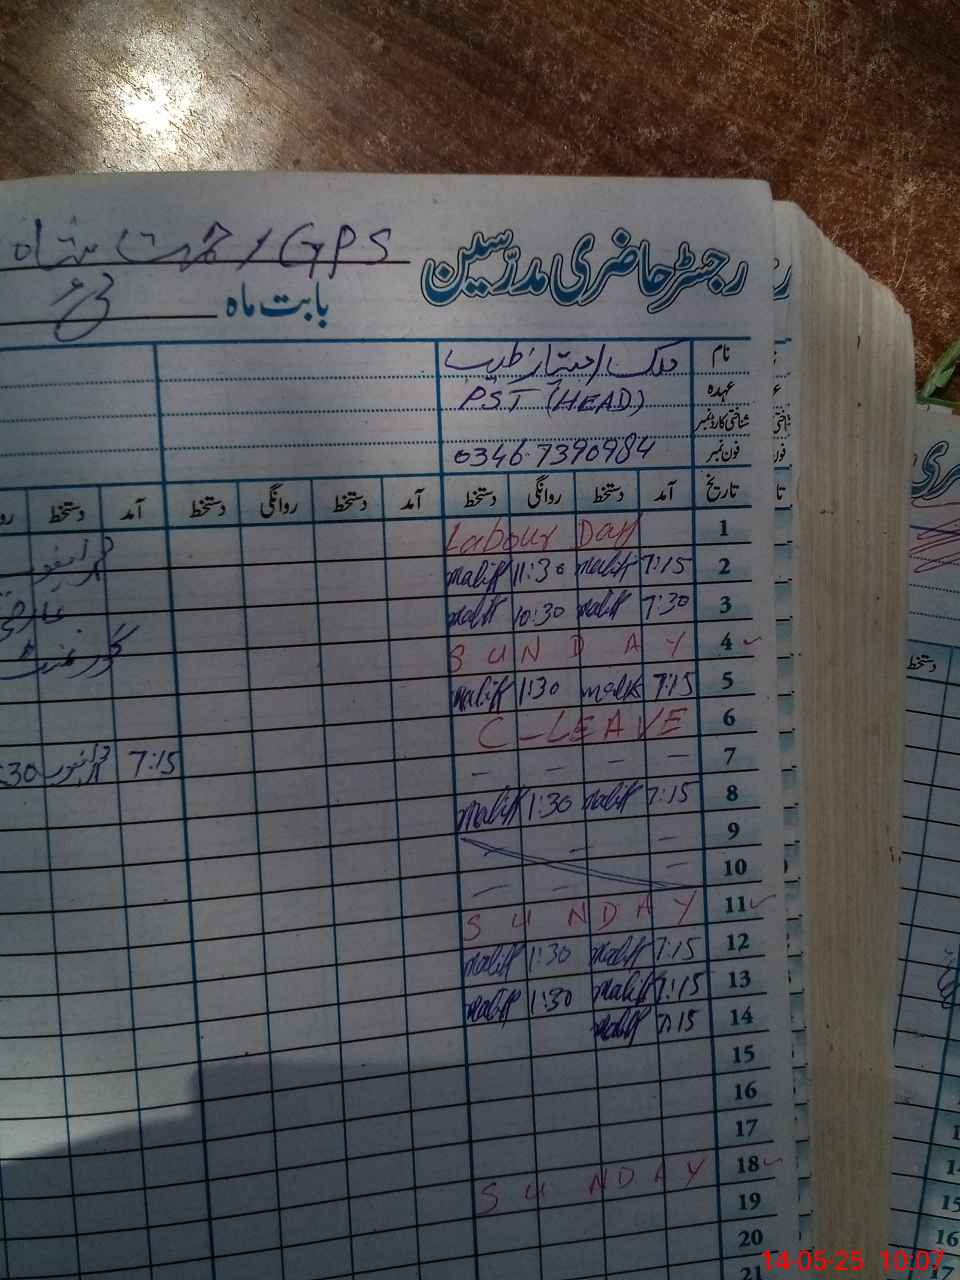 GPS
رجسٹر حاضری مدرّسین
بابت ماہ
نام ملک
عہدہ PST (HEAD)
شناختی کارڈ نمبر
فون نمبر 0346-7390984
تاریخ آمد دستخط روانگی دستخط آمد دستخط روانگی دستخط آمد دستخط
1 Labour Day
2 7:15 malik 11:30 malik
3 7:30 malik 10:30 malik
4 SUNDAY
5 7:15 malik 1:30 malik
6 C-LEAVE
7 - - - -
8 7:15 malik 1:30 malik 7:15
9 - - -
10 - - -
11 SUNDAY
12 7:15 malik 1:30 malik
13 7:15 malik 1:30 malik
14 7:15 malik
15
16
17
18 SUNDAY
19
20
21
دستخط
15
16
17
14-05-25 10:07